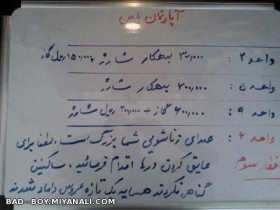 آپارتمان یاس
واحد ۲: ۳۰/۰۰۰ بدهکار شارژ + ۱۵۰/۰۰۰ ریال گاز
واحد ۵: ۲۰۰/۰۰۰ بدهکار شارژ
واحد ۵: ۶۰۰/۰۰۰ گاز + ۲۰۰/۰۰۰ ریال شارژ
واحد ۶: صدای زناشویی شما بزرگ است، لطفا برای
عایق کردن درها اقدام فرمائید، ساکنین
اخطار سوم
گناهی نکردند همسایه یک تازه عروس داماد شدند
BAD_BOY.MIYANALI.COM